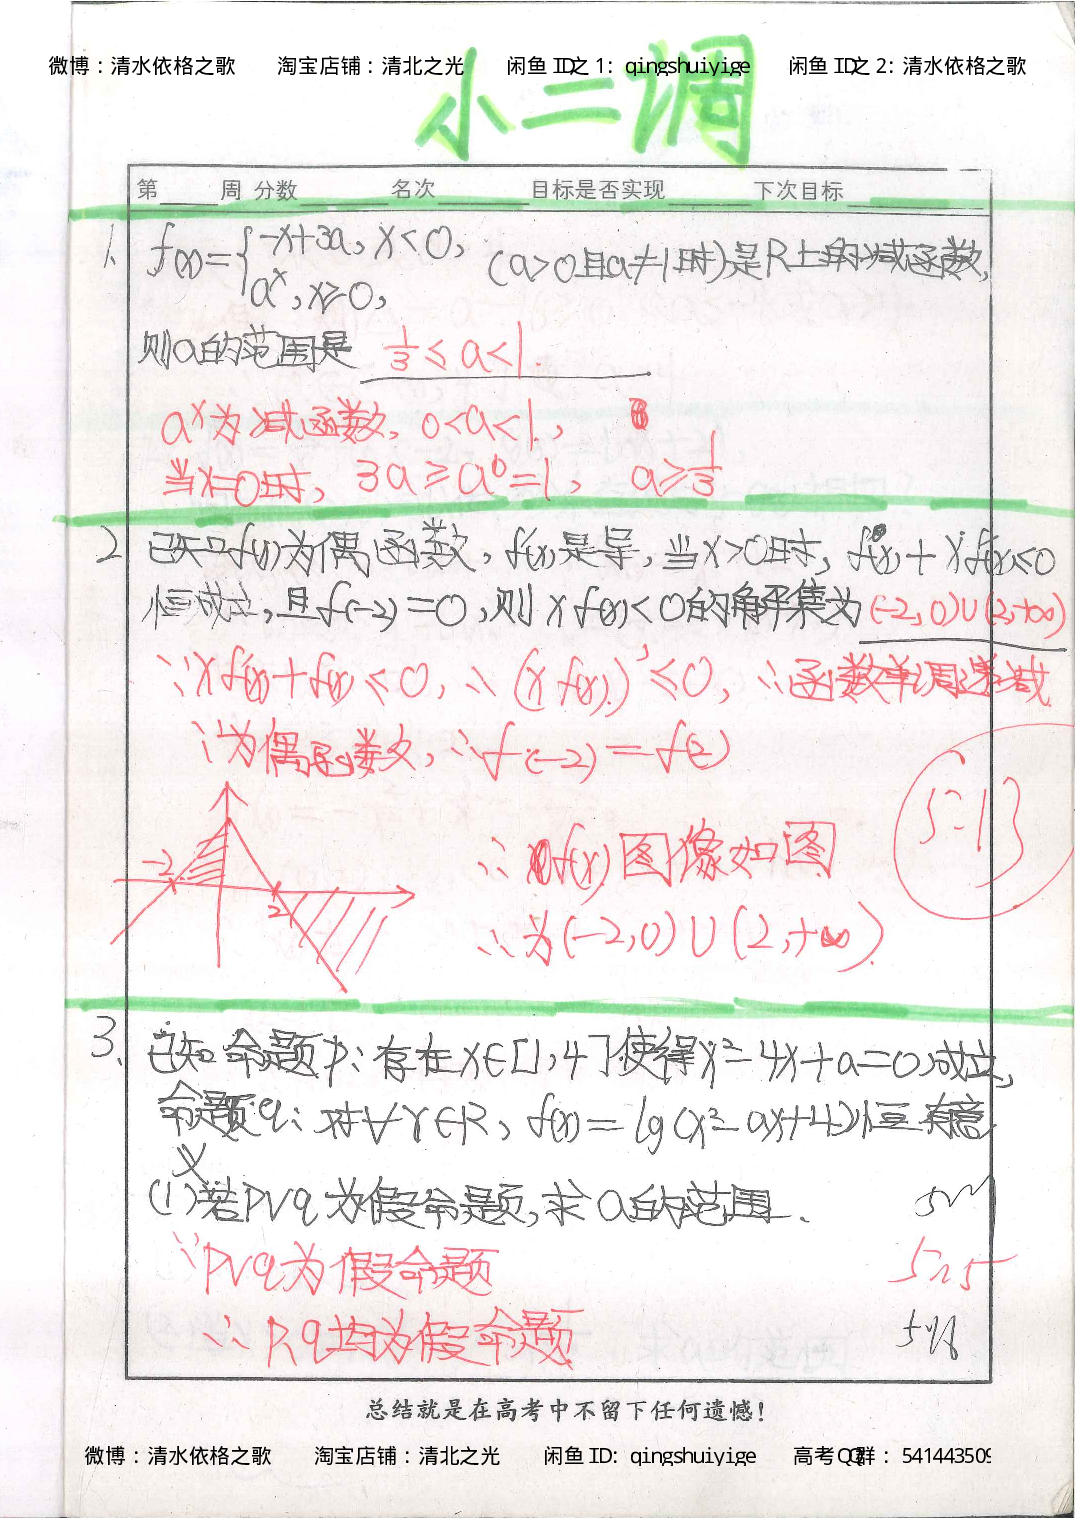 微博：清水依格之歌 淘宝店铺：清北之光 闲鱼 ID之 1: qingshuiyige 闲鱼 ID之 2: 清水依格之歌
小二调
第____周 分数______ 名次______ 目标是否实现______ 下次目标______
1. f(x)={-x+3a, x<0, a^x, x≥0, (a>0且a≠1时)是R上的减函数,
则a的范围是 1/3≤a<1.
a^x为减函数, 0<a<1,
当x=0时, 3a≥a^0=1, a≥1/3
2 已知f(x)为偶函数, f(x)是导, 当x>0时, f(x)+xf(x)<0
恒成立, 且f(-2)=0, 则xf(x)<0的解集为(-2,0)∪(2,+∞)
∵xf(x)+f(x)≤0, ∴(xf(x))'≤0, ∴函数单调递减
∵为偶函数, ∴f(-2)=f(2)
-2
2
∴f(x)图像如图
∴为(-2,0)∪(2,+∞).
5-13
3. 已知命题p: 存在x∈[1,4]使得x²-4x+a=0成立,
命题q: 对∀x∈R, f(x)=lg(x²-ax+4)恒有意
义
(1)若p∨q为假命题, 求a的范围.
∵p∨q为假命题
∴p,q均为假命题
总结就是在高考中不留下任何遗憾！
微博：清水依格之歌 淘宝店铺：清北之光 闲鱼 ID: qingshuiyige 高考QQ群：541443509